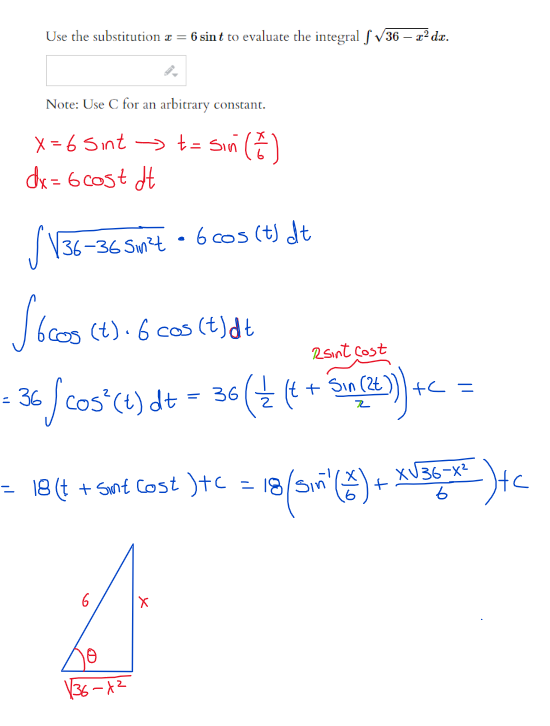 Use the substitution x = 6 sin t to evaluate the integral ∫ √(36 − x²) dx.
Note: Use C for an arbitrary constant.
x = 6 sint → t = sin⁻(x/6)
dx = 6 cost dt
∫ √(36−36 sin²t) • 6 cos (t) dt
∫ 6cos (t) . 6 cos (t) dt
2sint cost
= 36 ∫ cos²(t) dt = 36 (1/2 (t + sin(2t)/2)) + c =
= 18 (t + sint cost) + c = 18 (sin⁻¹(x/6) + x√(36−x²)/6) + c
6
x
θ
√(36−x²)